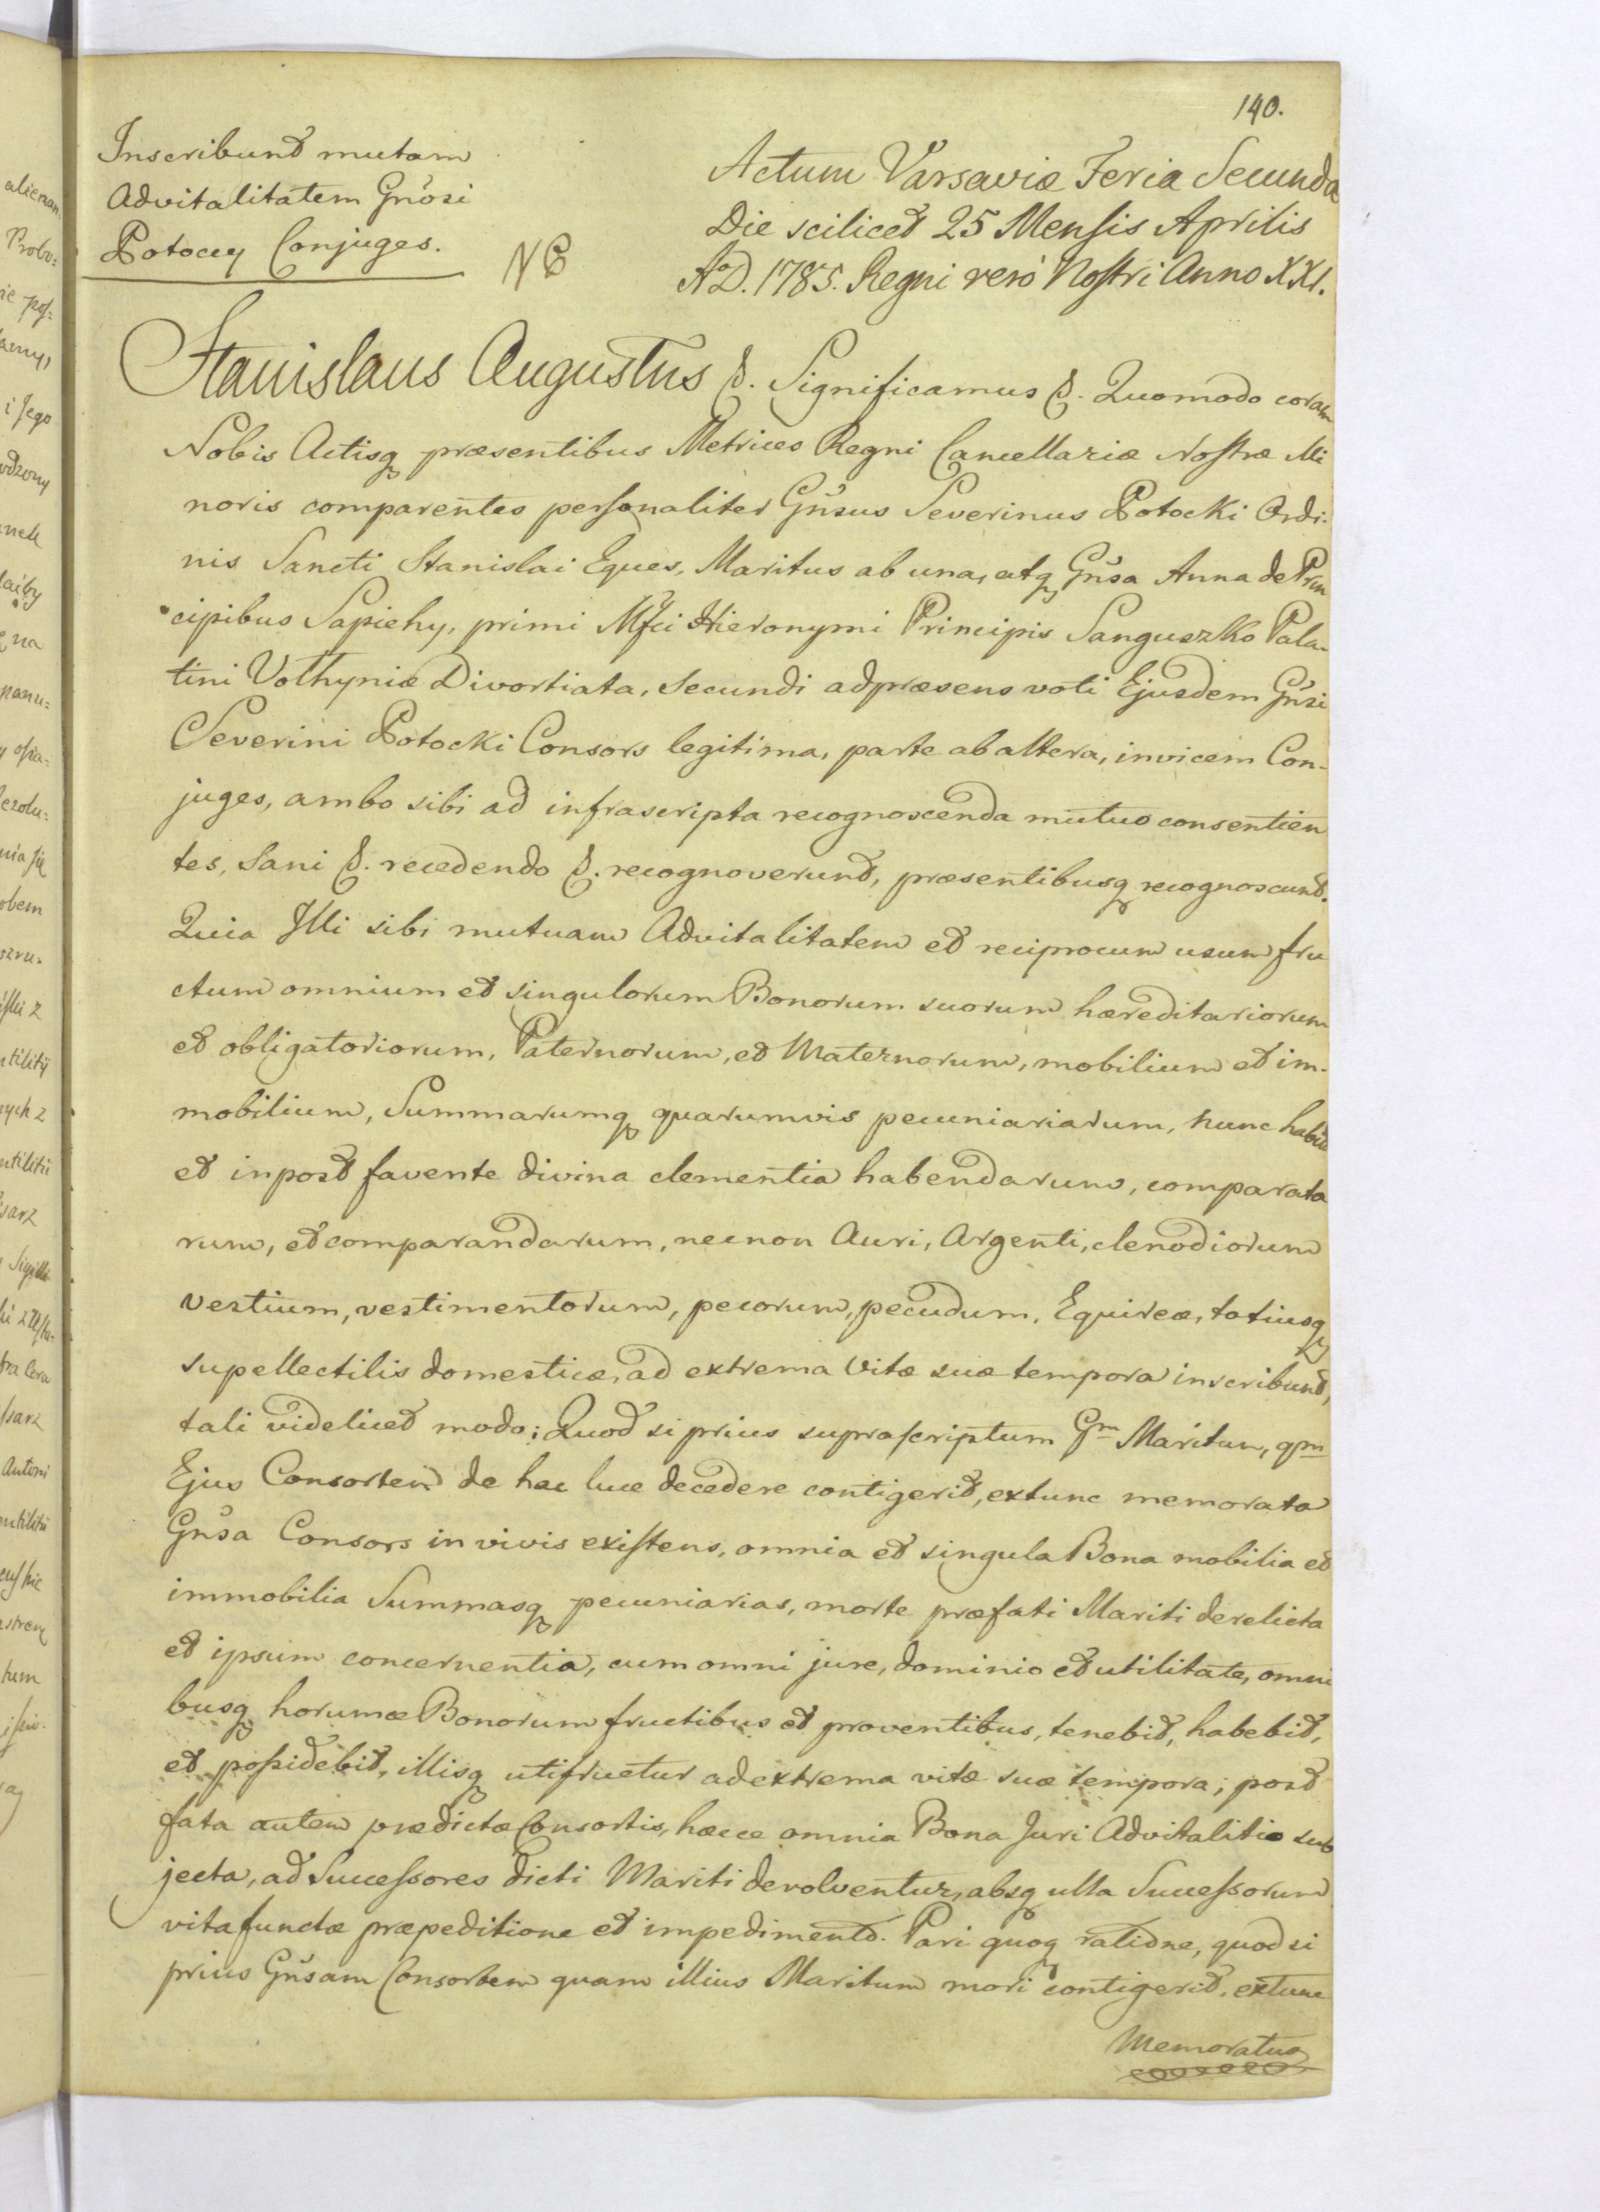 140.
Inscribunt mutam
Advitalitatem Gnosi
Potoccy Conjuges.
Actum Varsaviæ Feria Secunda
Die scilicet 25 Mensis Aprilis
A°D. 1785. Regni verò Nostri Anno XXI.
Stanislaus Augustus &. Significamus &. Quomodo coram
Nobis Actisq præsentibus Metrices Regni Cancellariæ Nostræ Mi
noris comparentes personaliter Gnsus Severinus Potocki Ordi-
nis Sancti Stanislai Eques, Maritus ab una, atq Gnsa Anna de Prin
cipibus Sapiehy, primi Mfci Hieronymi Principis Sanguszko Pala-
tini Volhyniæ Divortiata, secundi adpræsens voti Ejusdem Gnsi
Severini Potocki Consors legitima, parte ab altera, invicem Con-
juges, ambo sibi ad infrascripta recognoscenda mutuo consentien
tes, Sani &. recedendo &. recognoverunt, præsentibusq recognoscunt.
Quia Illi sibi mutuam Advitalitatem et reciprocum usum fru
ctum omnium et singulorum Bonorum suorum hæreditariorum
et obligatoriorum, Paternorum, et Maternorum, mobilium et im-
mobilium, Summarumq quarumvis pecuniariarum, nunc
et inpost favente divina clementia habendarum, comparata
rum, et comparandarum, necnon Auri, Argenti, clenodiorum
vestium, vestimentorum, pecorum, pecudum, Equireæ, totiusq
supellectilis domesticæ, ad extrema Vitæ suæ tempora inscribunt,
tali videlicet modo; Quod si prius suprascriptum Gm Maritum, qm
Ejus Consortem de hac luce decedere contigerit, extunc memorata
Gnsa Consors in vivis existens, omnia et singula Bona mobilia et
immobilia Summasq pecuniarias, morte præfati Mariti derelicta
et ipsum concernentia, cum omni jure, dominio et utilitate, omni
busq horumce Bonorum fructibus et proventibus, tenebit, habebit,
et possidebit, illisq utifruetur ad extrema vitæ suæ tempora; post
fata autem prædictæ Consortis, hæcce omnia Bona Juri Advitalitio sub
jecta, ad Successores dicti Mariti devolventur, absq ulla Successorum
vitafunctæ præpeditione et impedimento. Pari quoq ratione, quod si
prius Gnsam Consortem quam illius Maritum mori contigerit, extunc
Memoratus